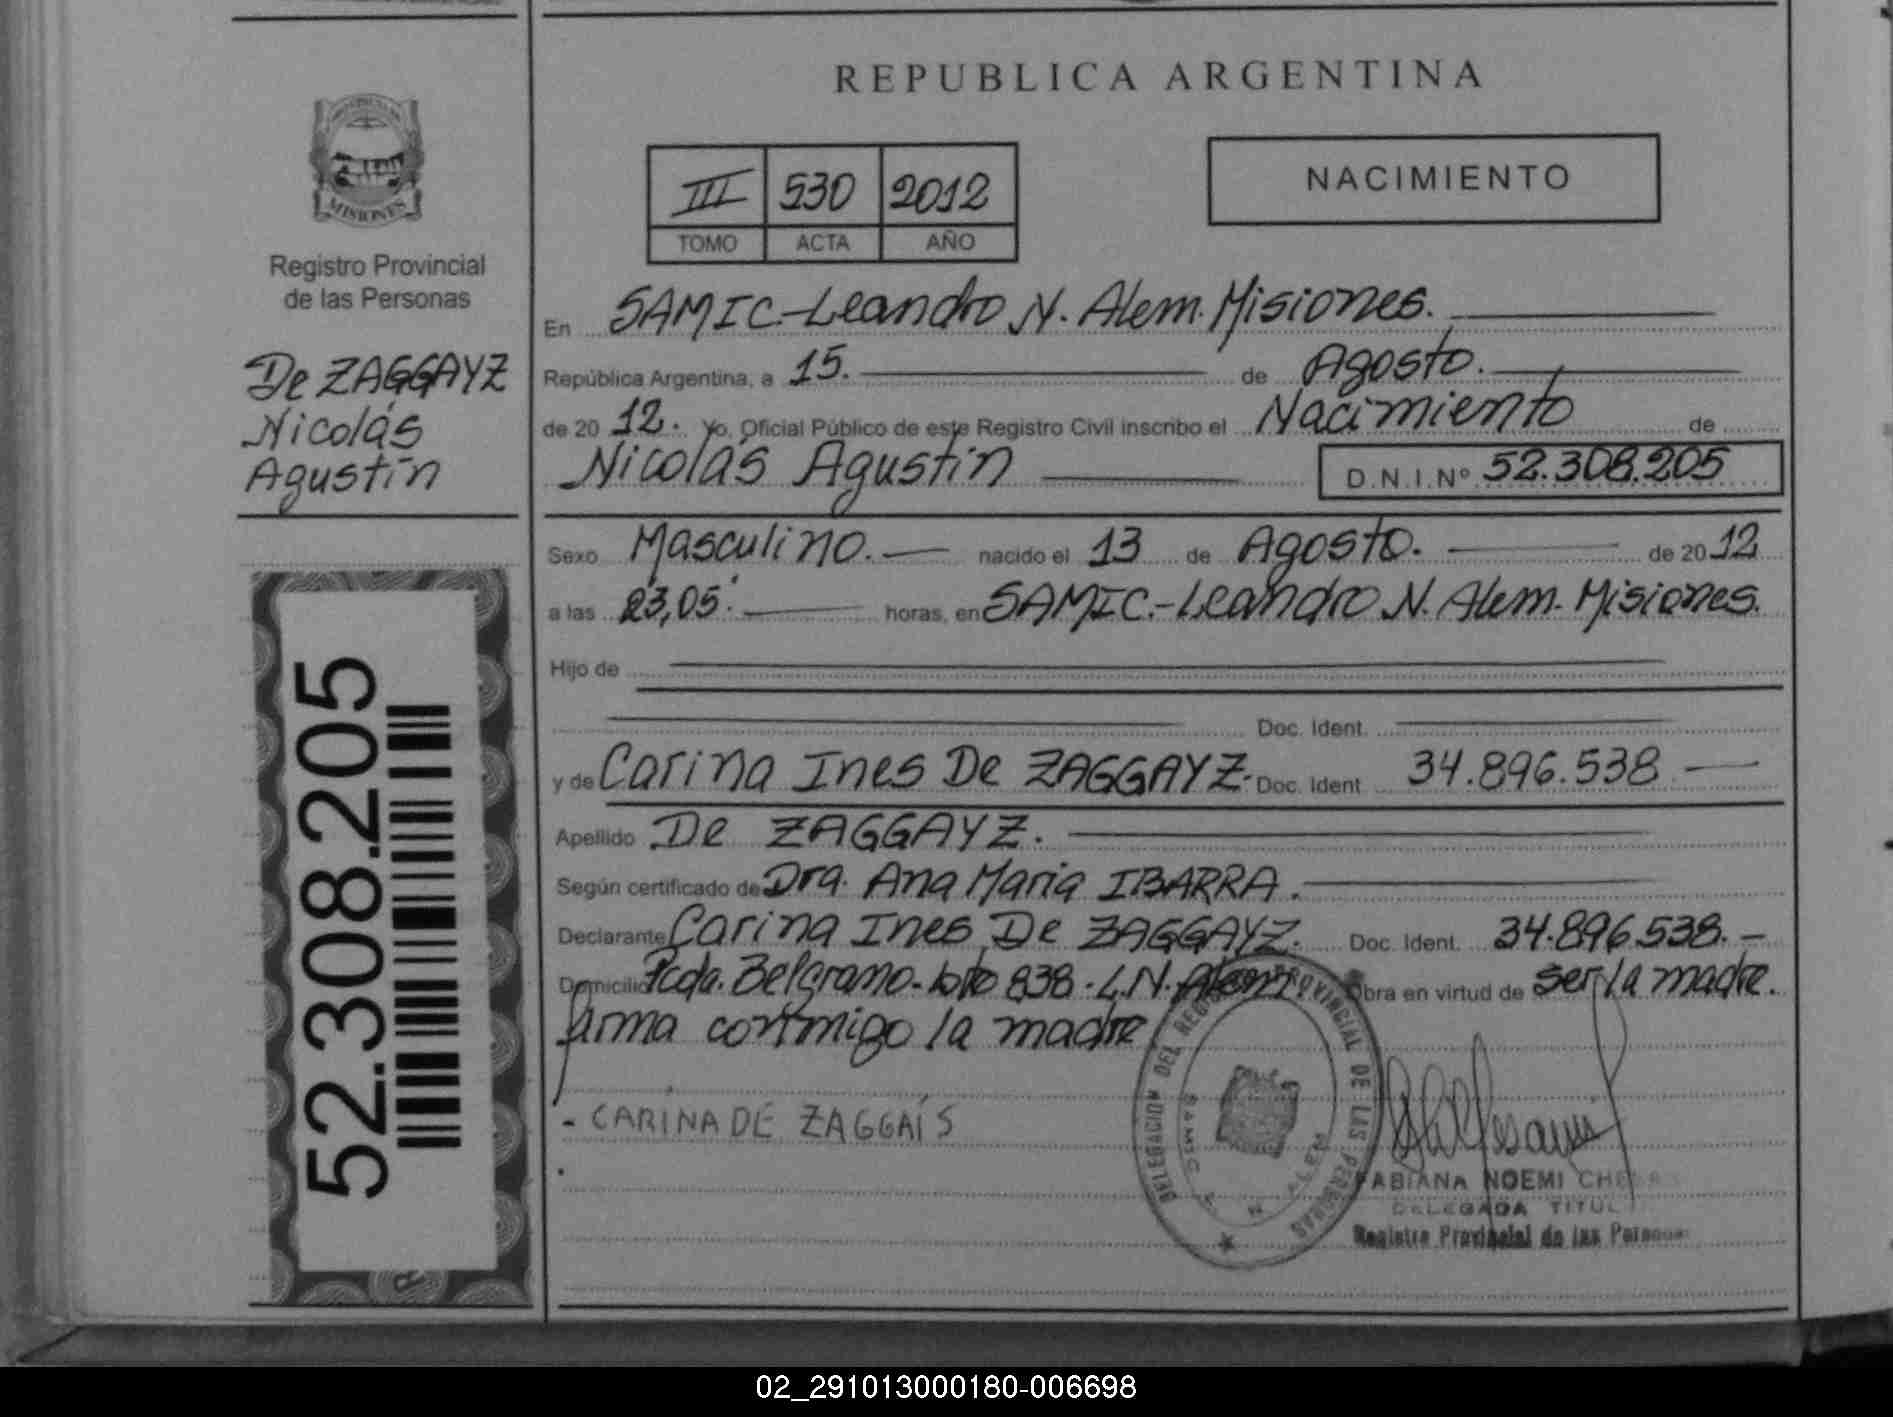 REPUBLICA ARGENTINA
MISIONES
Registro Provincial
de las Personas
De ZAGGAYZ
Nicolás
Agustín
52.308.205
III 530 2012
TOMO ACTA AÑO
NACIMIENTO
En SAMIC.-Leandro N. Alem. Misiones.
República Argentina, a 15. de Agosto.
de 20 12. Yo, Oficial Público de este Registro Civil inscribo el Nacimiento de
Nicolás Agustín D.N.I.Nº 52.308.205
Sexo Masculino. nacido el 13 de Agosto. de 20 12
a las 23,05. horas, en SAMIC.-Leandro N. Alem. Misiones.
Hijo de
Doc. Ident.
y de Carina Ines De ZAGGAYZ. Doc. Ident 34.896.538
Apellido De ZAGGAYZ.
Según certificado de Dra. Ana Maria IBARRA.
Declarante Carina Ines De ZAGGAYZ. Doc. Ident. 34.896.538.-
Domicilio Pcda. Belgrano- lote 838. L.N. Alem. Obra en virtud de ser la madre.
firma conmigo la madre
- CARINA DE ZAGGAIS
DELEGACION DEL REGISTRO PROVINCIAL DE LAS PERSONAS
SAMIC L N ALEM
FABIANA NOEMI
DELEGADA TITUL
Registro Provincial de las Personas
02_291013000180-006698